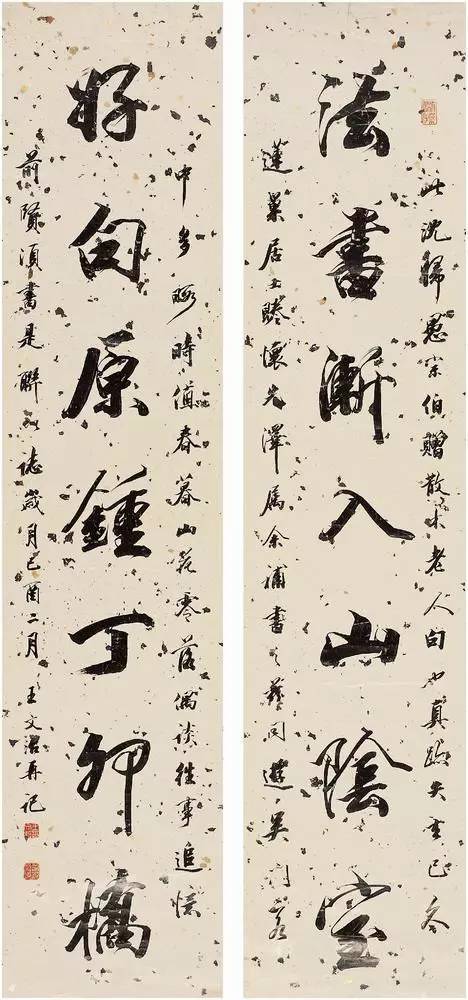 此沈歸愚宗伯贈散木老人句也真跡失去已久
法書漸入山陰室
蓬巢居士睠懷先澤屬余補書之同遊吳門
中多暇時值春暮山花零落偶談往事追憶
好句原鍾丁卯橋
前賢須書是聯以誌歲月己酉二月王文治再記